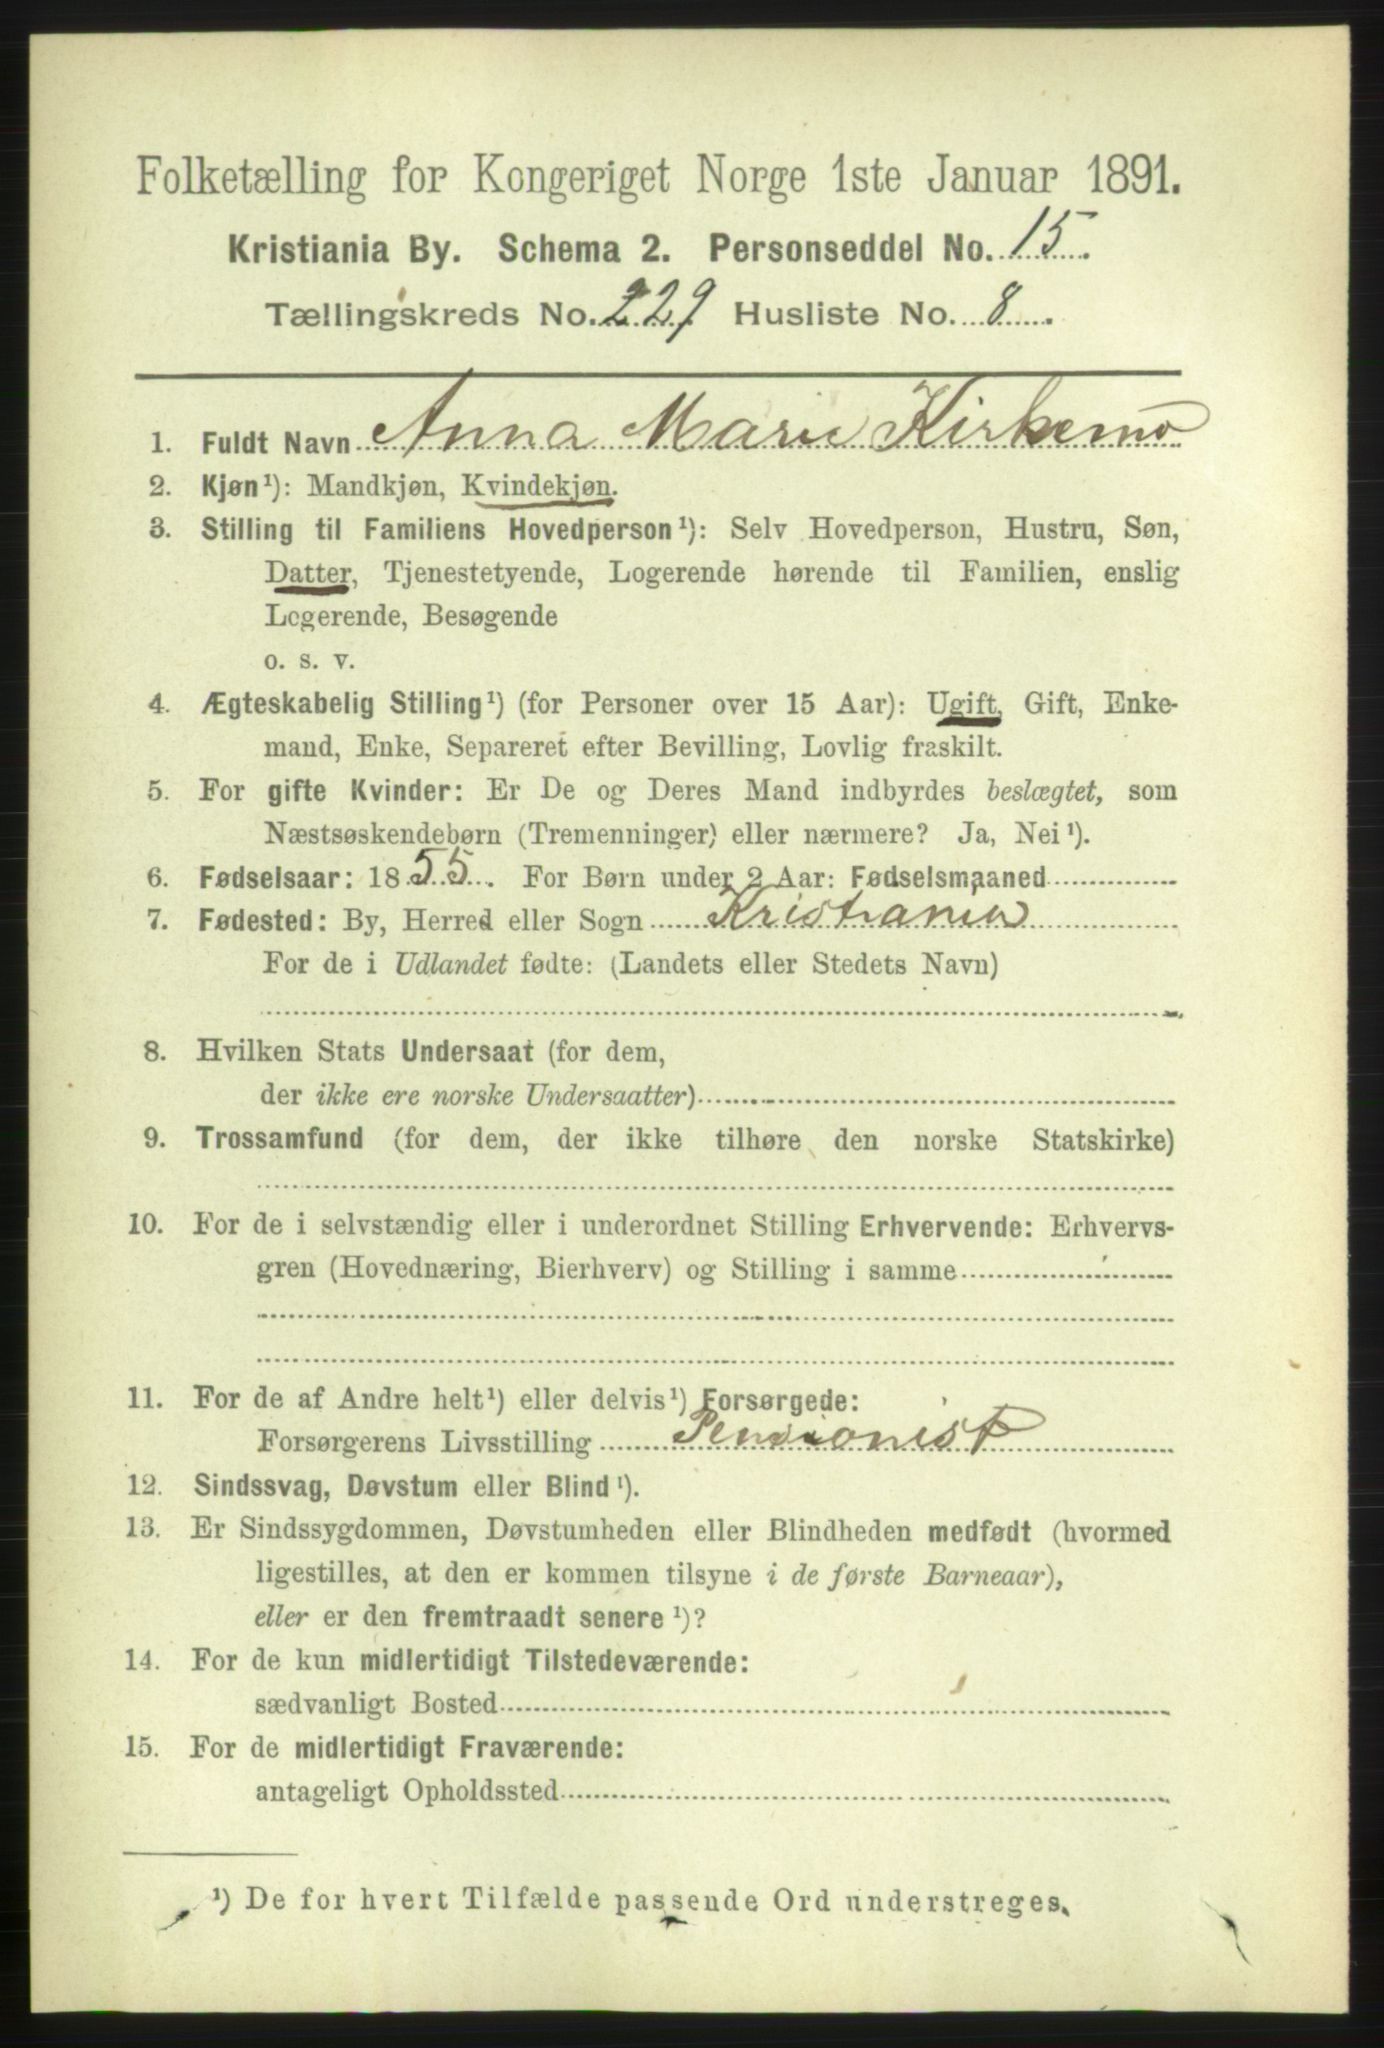 Folketælling for Kongeriget Norge 1ste Januar 1891.
Kristiania By. Schema 2. Personseddel No. 15.
Tællingskreds No. 229 Husliste No. 8.
1. Fuldt Navn Anna Marie Kirkemo
2. Kjøn¹): Mandkjøn, Kvindekjøn.
3. Stilling til Familiens Hovedperson¹): Selv Hovedperson, Hustru, Søn,
Datter, Tjenestetyende, Logerende hørende til Familien, enslig
Logerende, Besøgende
o. s. v.
4. Ægteskabelig Stilling¹) (for Personer over 15 Aar): Ugift, Gift, Enke-
mand, Enke, Separeret efter Bevilling, Lovlig fraskilt.
5. For gifte Kvinder: Er De og Deres Mand indbyrdes beslægtet, som
Næstsøskendebørn (Tremenninger) eller nærmere? Ja, Nei¹).
6. Fødselsaar: 1855. For Børn under 2 Aar: Fødselsmaaned
7. Fødested: By, Herred eller Sogn Kristiania
For de i Udlandet fødte: (Landets eller Stedets Navn)
8. Hvilken Stats Undersaat (for dem,
der ikke ere norske Undersaatter)
9. Trossamfund (for dem, der ikke tilhøre den norske Statskirke)
10. For de i selvstændig eller i underordnet Stilling Erhvervende: Erhvervs-
gren (Hovednæring, Bierhverv) og Stilling i samme
11. For de af Andre helt¹) eller delvis¹) Forsørgede:
Forsørgerens Livsstilling Pensionist
12. Sindssvag, Døvstum eller Blind¹).
13. Er Sindssygdommen, Døvstumheden eller Blindheden medfødt (hvormed
ligestilles, at den er kommen tilsyne i de første Barneaar),
eller er den fremtraadt senere¹)?
14. For de kun midlertidigt Tilstedeværende:
sædvanligt Bosted
15. For de midlertidigt Fraværende:
antageligt Opholdssted
¹) De for hvert Tilfælde passende Ord understreges.